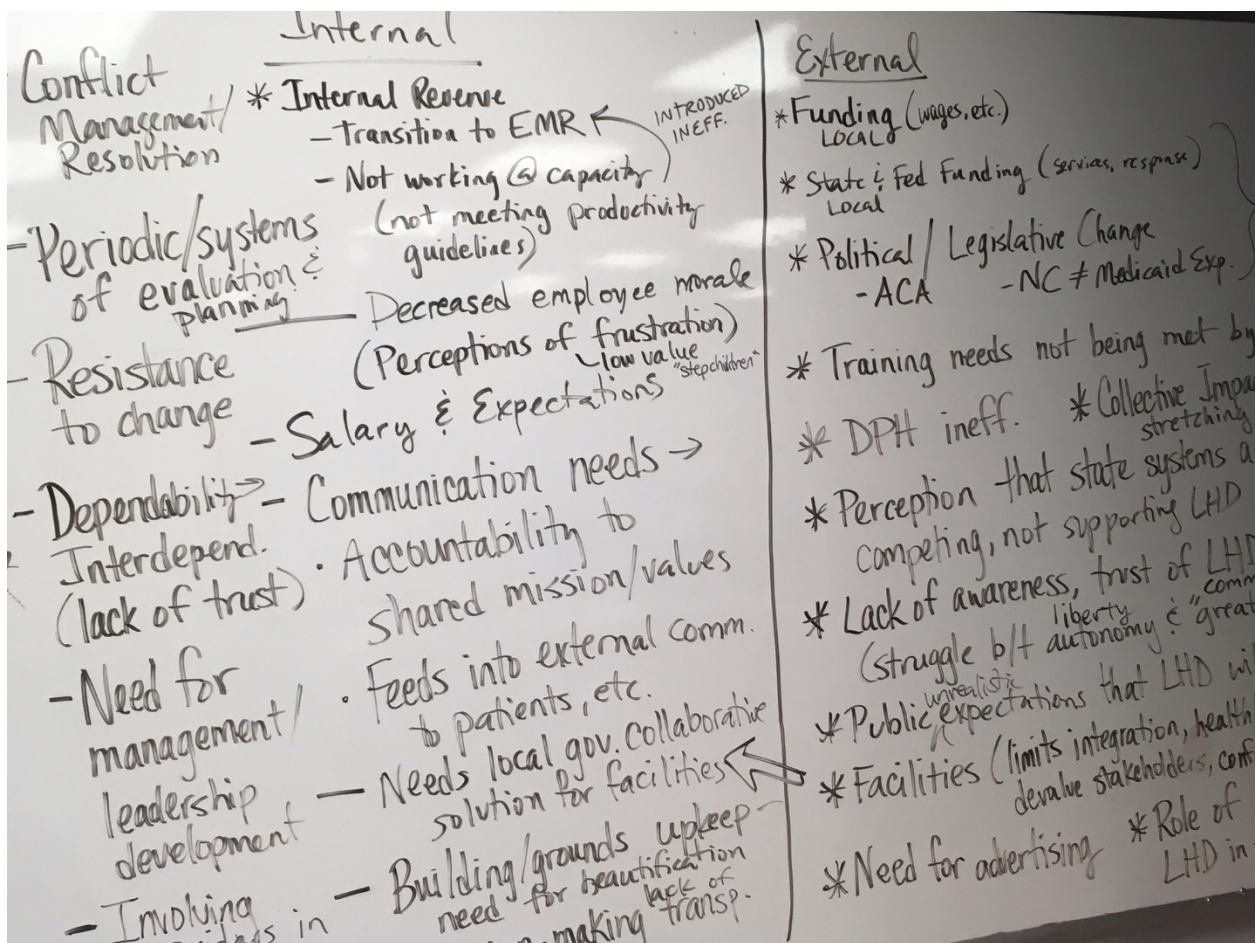 Internal
Conflict
Management/
Resolution
- Periodic/systems
of evaluation &
planning
- Resistance
to change
- Dependability →
Interdepend.
(lack of trust)
- Need for
management/
leadership
development
- Involving
in
* Internal Revenue
- Transition to EMR
INTRODUCED
INEFF.
- Not working @ capacity
(not meeting productivity
guidelines)
- Decreased employee morale
(Perceptions of frustration)
low value
"stepchildren"
- Salary & Expectations
- Communication needs →
· Accountability to
shared mission/values
· Feeds into external comm.
to patients, etc.
- Needs local gov. collaborative
solution for facilities
- Building/grounds upkeep -
need for beautification
lack of
making transp.
External
* Funding (wages, etc.)
LOCAL
* State & Fed Funding (services, response)
Local
* Political / Legislative Change
- ACA - NC ≠ Medicaid Exp.
* Training needs not being met by
* DPH ineff. * Collective Impa
stretching
* Perception that state systems a
competing, not supporting LHD
* Lack of awareness, trust of LHD
liberty "comm
(struggle b/t autonomy & great
unrealistic
* Public expectations that LHD wi
* Facilities (limits integration, health
devalue stakeholders, conf
* Need for advertising * Role of
LHD in